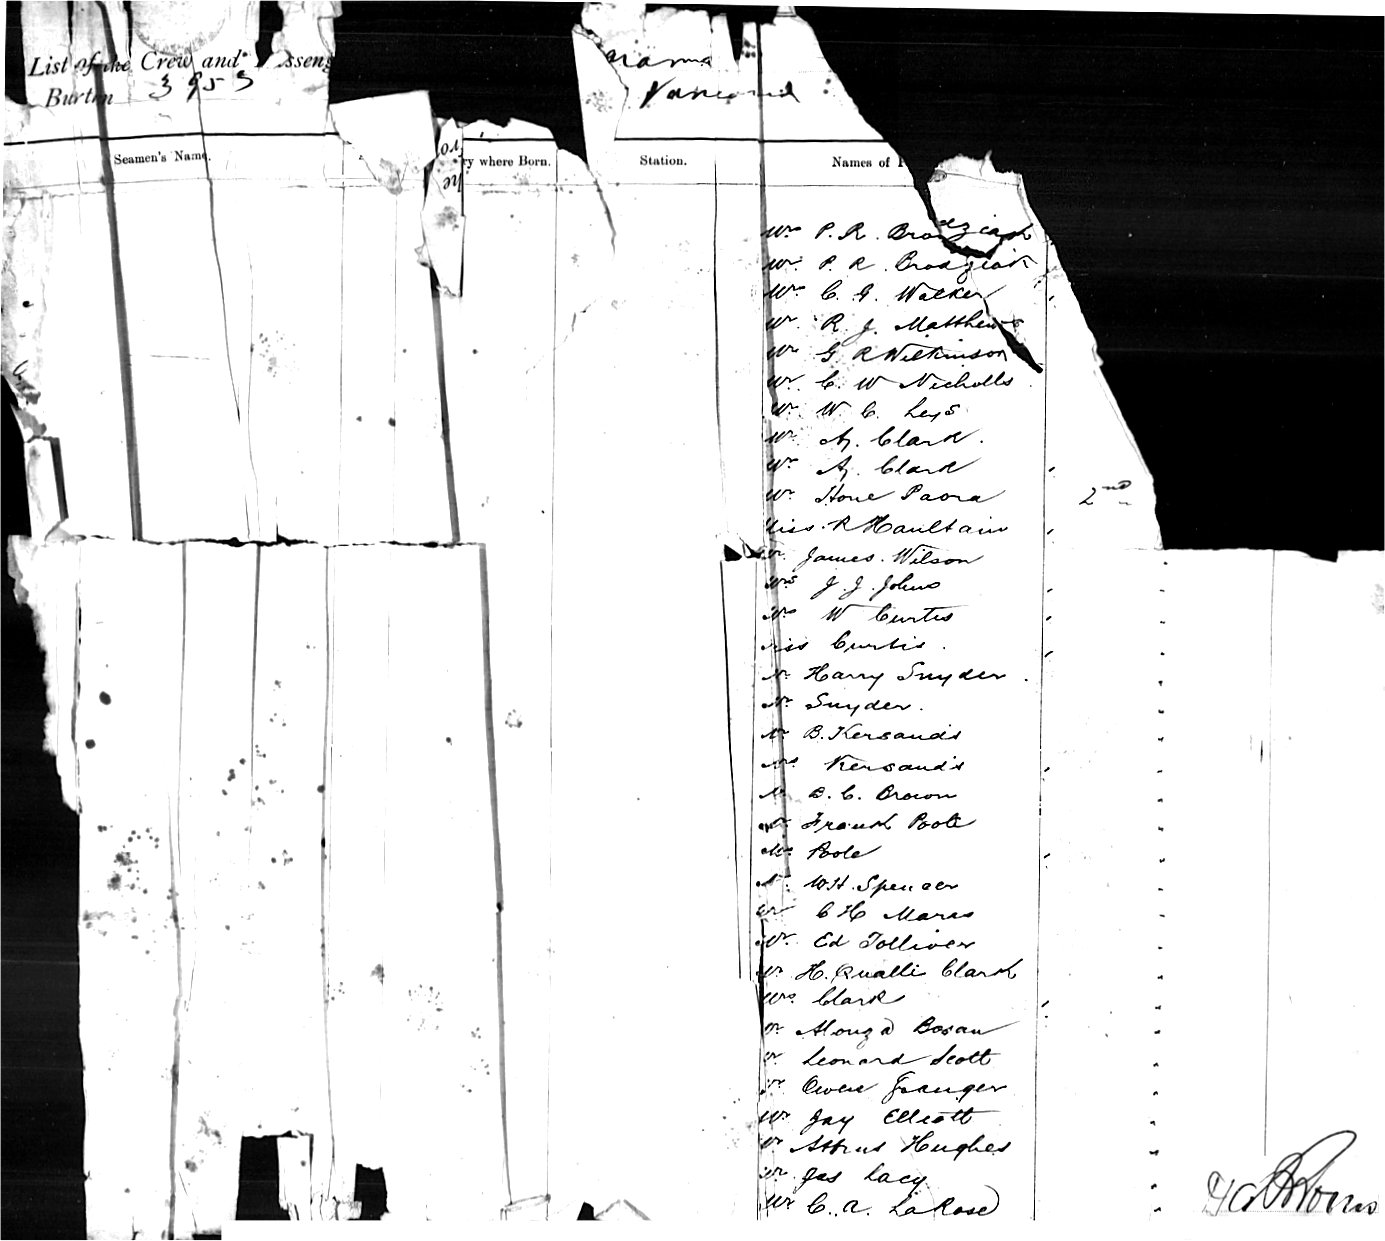 List of the Crew and
Burthen 3953
Vancouver
Seamen's Name.
ry where Born.
Station.
Names of P
Mrs P. R. Brodziak
Mr. P. R. Brodziak
Mrs C. G. Walker
Mr. R. J. Matthews
Mr G R Wilkinson
Mr. C. W Nicholls
Mr. W. C. Leys
Mr. A. Clark.
Mr. A. Clark
Mr. Hone Paora 2nd
Miss. R Haultain
Mr. James. Wilson
Mrs J. J. Johns
Mrs W Curtis
Miss Curtis.
Mr Harry Snyder
Mr Snyder.
Mr B. Kersands
Mrs Kersands
Mr D. C. Brown
Mr. Frank Poole
Mrs Poole
Mr. W. H. Spencer
Mr C H Maras
Mr. Ed Tolliver
Mr H. Qualli Clark
Mrs Clark
Mr Alonza Bosan
Mr Leonard Scott
Mr Owen Granger
Mr Jay Elliott
Mr Attrus Hughes
Mr Jas Lacy
Mr C. A. LaRose